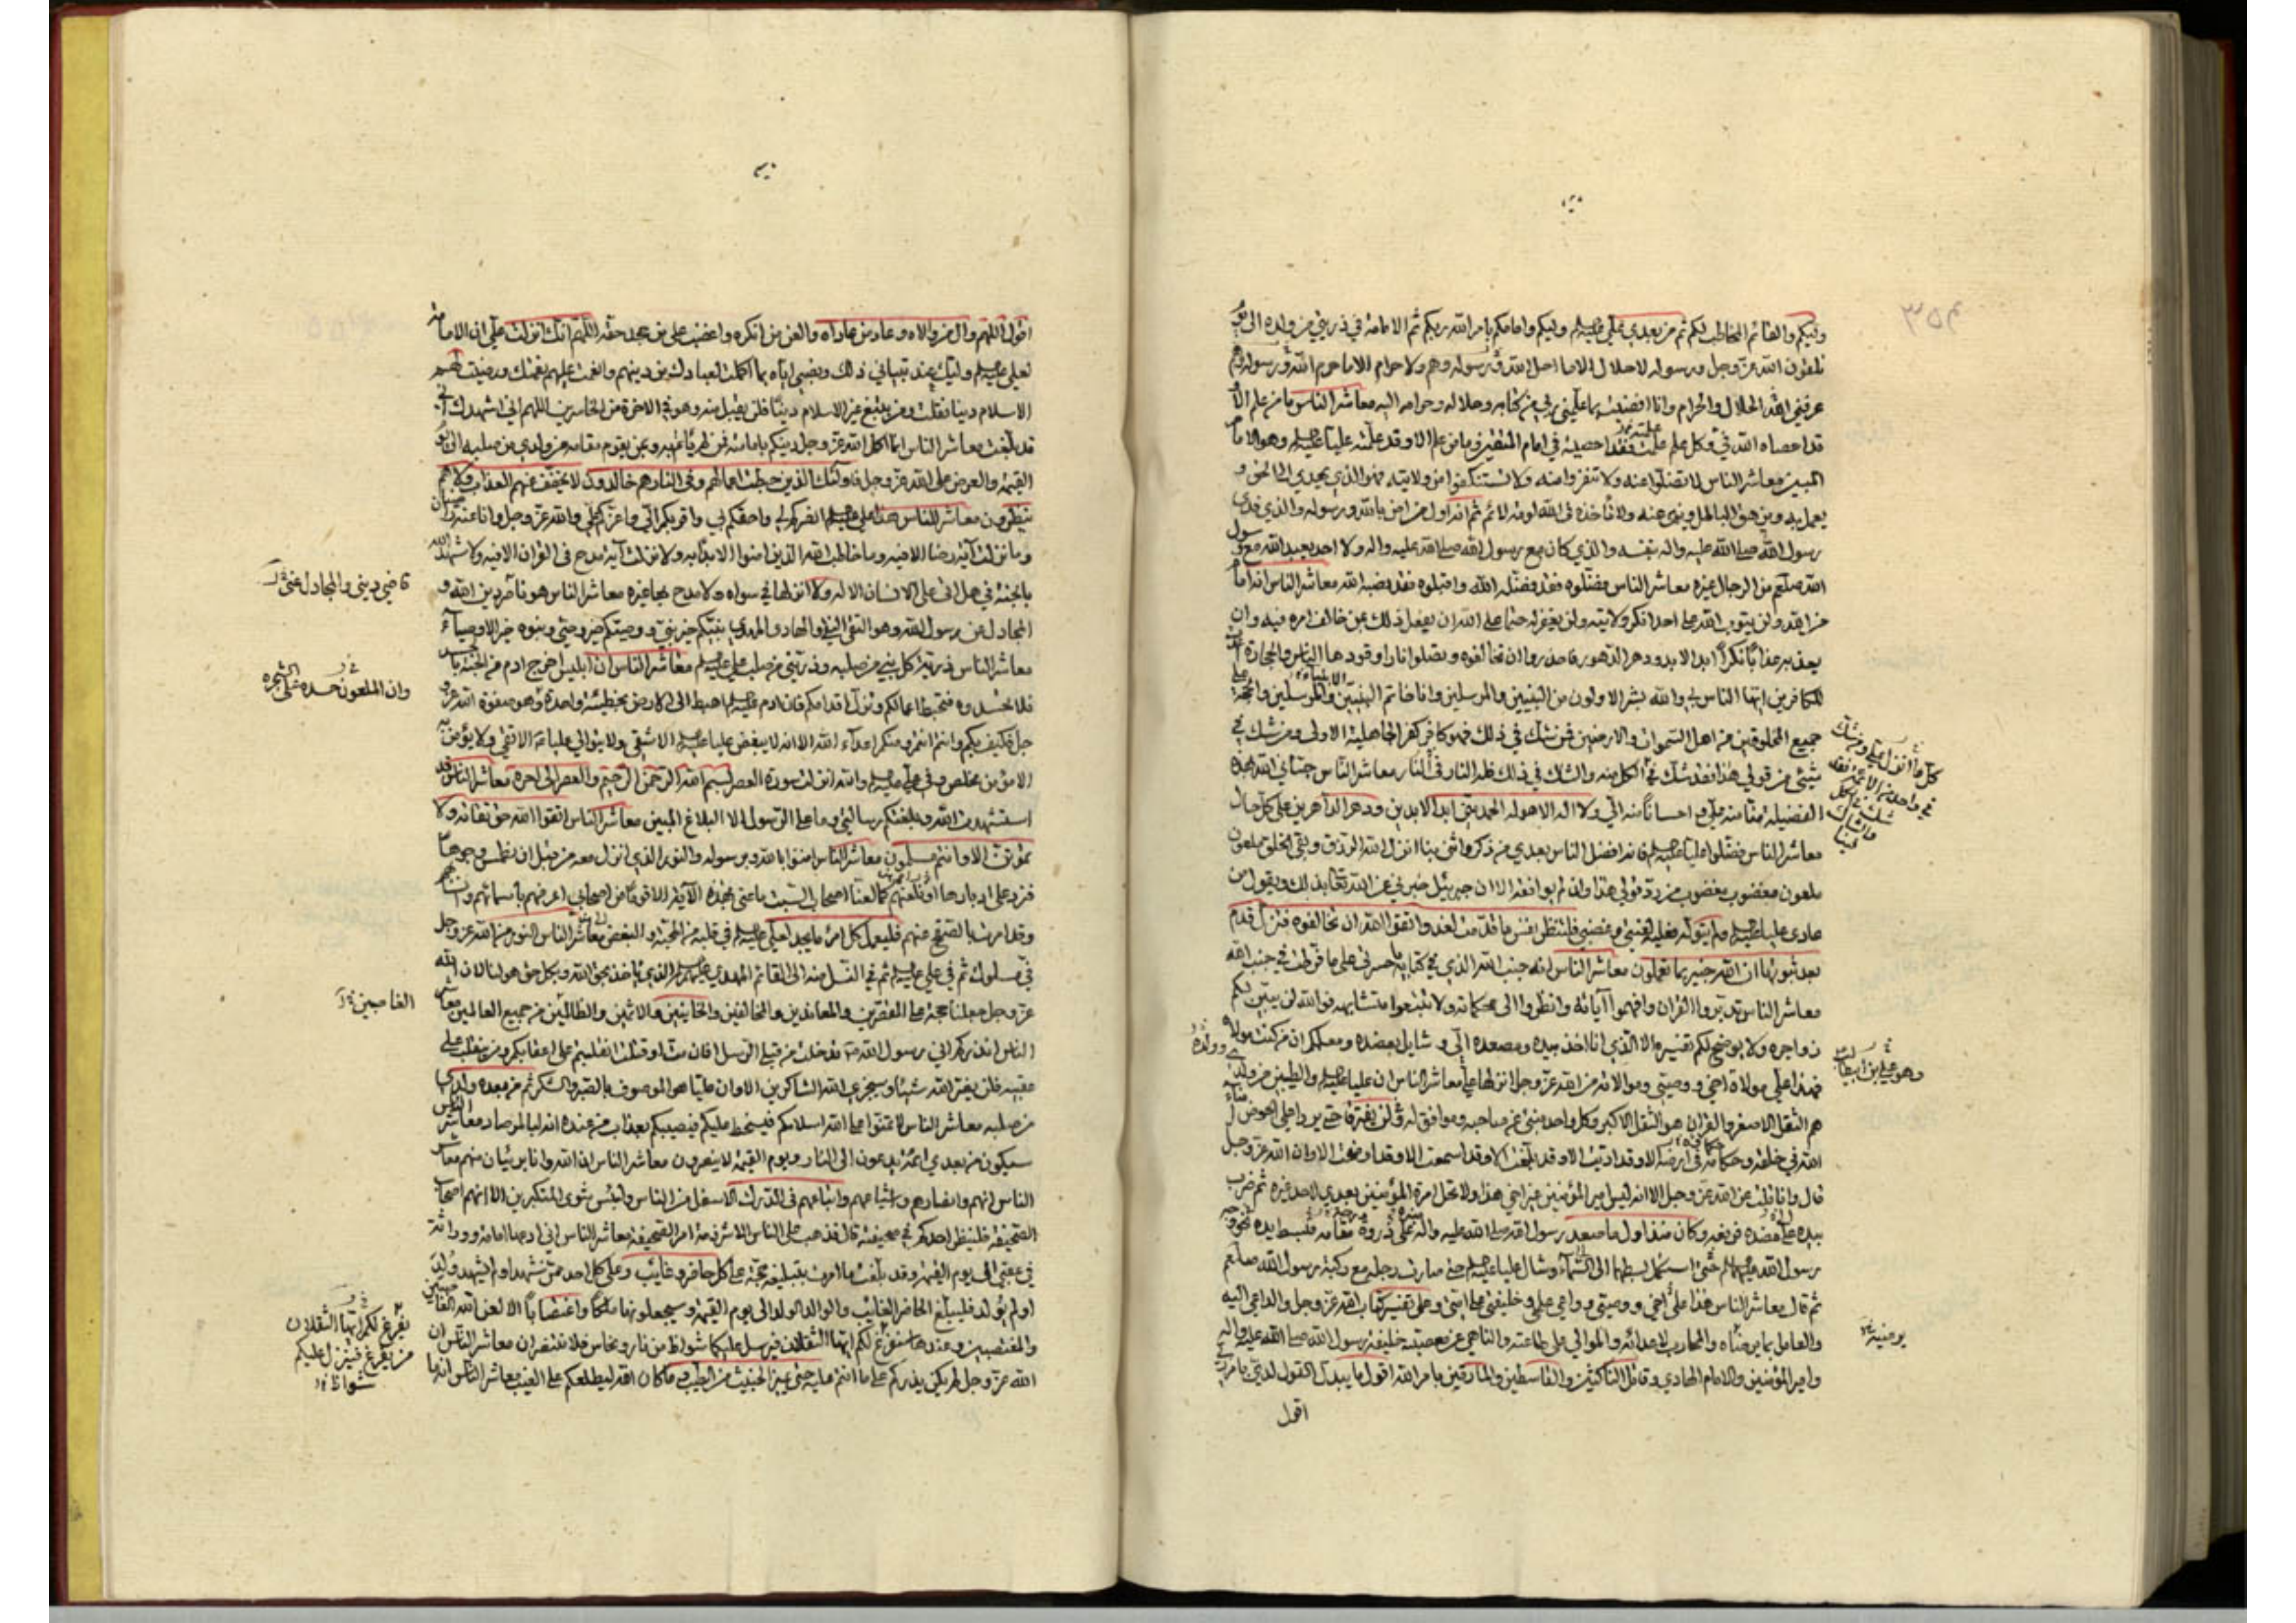 وليكم والقائم المخاطب لكم ثم من بعدي علي عليه السلم وليكم وامامكم بامر الله ربكم ثم الامامة في ذريتي من ولده الى يوم
تلقون الله عز وجل ورسوله لا حلال الا ما احل الله ورسوله وهم ولا حرام الا ما حرم الله ورسوله وهم
عرفني الله الحلال والحرام وانا افضيت بما علمني ربي من كتابه وحلاله وحرامه اليه معاشر الناس ما من علم الا و
قد احصاه الله في وكل علم علمت فقد احصيته في امام المتقين وما من علم الا وقد علمته عليا عليه السلم وهو الامام
المبين معاشر الناس لا تضلوا عنه ولا تنفروا منه ولا تستنكفوا من ولايته فهو الذي يهدي الى الحق و
يعمل به ويزهق الباطل وينهى عنه ولا تأخذه في الله لومة لائم ثم انه اول من امن بالله ورسوله والذي فدى
رسول الله صلى الله عليه واله بنفسه والذي كان مع رسول الله صلى الله عليه واله ولا احد يعبد الله مع رسول
الله صلعم من الرجال غيره معاشر الناس فضلوه فقد فضله الله واقبلوه فقد نصبه الله معاشر الناس انه امام
من الله ولن يتوب الله على احد انكر ولايته ولن يغفر له حتما على الله ان يفعل ذلك بمن خالف امره فيه وان
يعذبه عذابا نكرا ابد الاباد ودهر الدهور فاحذروا ان تخالفوه وتصلوا نارا وقودها الناس والحجارة اعدت
للكافرين ايها الناس بي والله بشر الاولون من النبيين والمرسلين وانا خاتم النبيين والمرسلين والحجة على
جميع المخلوقين من اهل السموات والارضين فمن شك في ذلك فهو كافر كفر الجاهلية الاولى ومن شك في
شيئ من قولي هذا فقد شك في الكل منه والشك في ذلك فله النار معاشر الناس حباني الله بهذه
الفضيلة منا منه علي واحسانا منه الي ولا اله الا هو له الحمد مني ابد الابدين ودهر الداهرين على كل حال
معاشر الناس فضلوا عليا عليه السلم فانه افضل الناس بعدي من ذكر وانثى بنا انزل الله الرزق وبقي الخلق ملعون
ملعون مغضوب مغضوب من رد قولي هذا وان لم يوافقه الا ان جبرئيل خبرني عن الله تعالى بذلك ويقول من
عادى عليا عليه السلم ولم يتوله فعليه لعنتي وغضبي فلتنظر نفس ما قدمت لغد واتقوا الله ان تخالفوه فتزل قدم
بعد ثبوتها ان الله خبير بما تعملون معاشر الناس انه جنب الله الذي في كتابه يا حسرتى على ما فرطت في جنب الله
معاشر الناس تدبروا القران وافهموا آياته وانظروا الى محكماته ولا تتبعوا متشابهه فوالله لن يبين لكم
زواجره ولا يوضح لكم تفسيره الا الذي انا اخذ بيده ومصعده الي وشايل بعضده ومعلمكم ان من كنت مولاه
فهذا علي مولاه اخي ووصيي وموالاته من الله عز وجل انزلها علي معاشر الناس ان عليا عليه السلم والطيبين من ولدي
هم الثقل الاصغر والقران هو الثقل الاكبر وكل واحد منبئ عن صاحبه وموافق له ولن يفترقا حتى يردا علي الحوض امناء
الله في خلقه وحكامه في ارضه الا وقد اديت الا وقد بلغت الا وقد اسمعت الا وقد اوضحت الا وان الله عز وجل
قال وانا قلت عن الله عز وجل الا انه ليس امير المؤمنين غير اخي هذا ولا تحل امرة المؤمنين بعدي لاحد غيره ثم ضرب
بيده على عضده فرفعه وكان منذ اول ما صعد رسول الله صلى الله عليه واله على ذروة مقامه فبسط يده نحو وجه
رسول الله حتى استكمل بسطهما الى السماء وشال عليا عليه السلم حتى صارت رجله مع ركبة رسول الله صلعم
ثم قال معاشر الناس هذا علي اخي ووصيي وواعي علمي وخليفتي على امتي وعلى تفسير كتاب الله عز وجل والداعي اليه
والعامل بما يرضاه والمحارب لاعدائه والموالي على طاعته والناهي عن معصيته خليفة رسول الله صلى الله عليه واله
وامير المؤمنين والامام الهادي وقاتل الناكثين والقاسطين والمارقين بامر الله اقول ما يبدل القول لدي بامر ربي
اقول
كل ما انزل علي ومن شك
في واحد من الائمة فقد
شك في الكل
والشاك
فينا
وهو علي بن ابيطالب
يرضيه
اقول اللهم وال من والاه وعاد من عاداه والعن من انكره واغضب على من جحد حقه اللهم انك انزلت علي ان الامامة
لعلي عليه السلم وليك عند تبياني ذلك ونصبي اياه بما اكملت لعبادك من دينهم واتممت عليهم نعمتك ورضيت لهم
الاسلام دينا فقلت ومن يبتغ غير الاسلام دينا فلن يقبل منه وهو في الاخرة من الخاسرين اللهم اني اشهدك اني
قد بلغت معاشر الناس انما اكمل الله عز وجل دينكم بامامته فمن لم يأتم به وبمن يقوم مقامه من ولدي من صلبه الى يوم
القيمة والعرض على الله عز وجل فاولئك الذين حبطت اعمالهم وفي النار هم خالدون لا يخفف عنهم العذاب ولا هم
ينظرون معاشر الناس هذا علي عليه السلم انصركم لي واحقكم بي واقربكم الي واعزكم علي والله عز وجل وانا عنه راضيان
وما نزلت آية رضا الا فيه وما خاطب الله الذين امنوا الا بدأ به ولا نزلت آية مدح في القران الا فيه ولا شهد الله
بالجنة في هل اتى على الانسان الا له ولا انزلها في سواه ولا مدح بها غيره معاشر الناس هو ناصر دين الله و
المجادل عن رسول الله وهو التقي النقي والهادي المهدي نبيكم خير نبي ووصيكم خير وصي وبنوه خير الاوصيآء
معاشر الناس ذرية كل نبي من صلبه وذريتي من صلب علي عليه السلم معاشر الناس ان ابليس اخرج ادم من الجنة بالحسد
فلا تحسدوه فتحبط اعمالكم وتزل اقدامكم فان ادم عليه السلم اهبط الى الارض بخطيئة واحدة وهو صفوة الله عز و
جل فكيف بكم وانتم انتم ومنكم اعدآء الله الا انه لا يبغض عليا عليه السلم الا شقي ولا يوالي عليا الا تقي ولا يؤمن به
الا مؤمن مخلص وفي علي عليه السلم والله انزلت سورة العصر بسم الله الرحمن الرحيم والعصر الى اخره معاشر الناس قد
استشهدت الله وبلغتكم رسالتي وما على الرسول الا البلاغ المبين معاشر الناس اتقوا الله حق تقاته ولا
تموتن الا وانتم مسلمون معاشر الناس امنوا بالله ورسوله والنور الذي انزل معه من قبل ان نطمس وجوها
فنردها على ادبارها او نلعنهم كما لعنا اصحاب السبت ما عنى بهذه الآية الا قوما من اصحابي اعرفهم باسمائهم وانسابهم
وقد امرت بالصفح عنهم فليعمل كل امرئ ما يجد لعلي عليه السلم في قلبه من المحبة والبغض معاشر الناس النور من الله عز وجل
في مسلوك ثم في علي عليه السلم ثم في النسل منه الى القائم المهدي الذي يأخذ بحق الله وبكل حق هو لنا لان الله
عز وجل جعلنا حجة على المقصرين والمعاندين والمخالفين والخاينين والاثمين والظالمين من جميع العالمين معاشر
الناس انذركم اني رسول الله قد خلت من قبلي الرسل افان مت او قتلت انقلبتم على اعقابكم ومن ينقلب على
عقبيه فلن يضر الله شيئا وسيجزي الله الشاكرين الا وان عليا هو الموصوف بالصبر والشكر ثم من بعده ولدي
من صلبه معاشر الناس لا تمنوا على الله اسلامكم فيسخط عليكم فيصيبكم بعذاب من عنده انه لبالمرصاد معاشر الناس
سيكون من بعدي ائمة يدعون الى النار ويوم القيمة لا ينصرون معاشر الناس ان الله وانا بريئان منهم معاشر
الناس انهم وانصارهم واشياعهم واتباعهم في الدرك الاسفل من النار ولبئس مثوى المتكبرين الا انهم اصحاب
الصحيفة فلينظر احدكم في صحيفته قال فذهب على الناس الا شرذمة امر الصحيفة معاشر الناس اني ادعها امامة ووراثة
في عقبي الى يوم القيمة وقد بلغت ما امرت بتبليغه حجة على كل حاضر وغايب وعلى كل احد ممن شهد او لم يشهد ولد
او لم يولد فليبلغ الحاضر الغايب والوالد الولد الى يوم القيمة وسيجعلونها ملكا واغتصابا الا لعن الله الغاصبين
والمغتصبين وعندها سنفرغ لكم ايها الثقلان فيرسل عليكما شواظ من نار ونحاس فلا تنتصران معاشر الناس ان
الله عز وجل لم يكن يذركم على ما انتم عليه حتى يميز الخبيث من الطيب وما كان الله ليطلعكم على الغيب معاشر الناس انه ما
قاضي ديني والمجادل عني
وان الملعون حسده على الشجرة
الغاصبين
يفرغ لكم ايها الثقلان
من يفرغ فينزل عليكم
شواظ